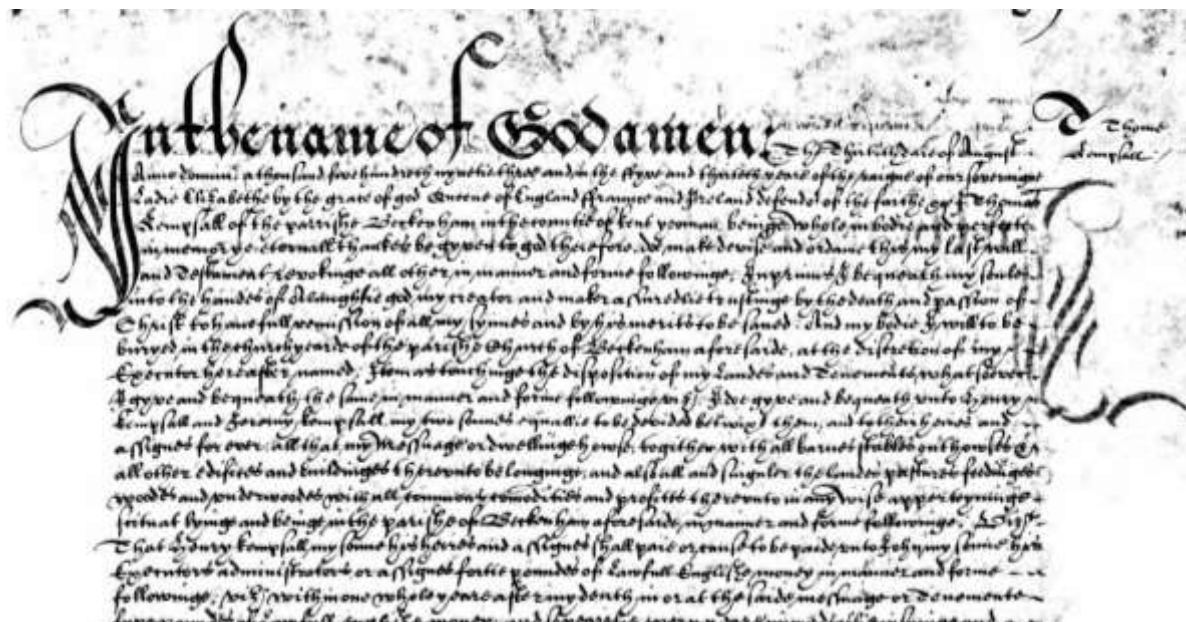 In the name of God amen: The Thirtith daie of August
Anno domini a thousand fyve hundreth nynetie three and in the fyve and thirteth yeare of the raigne of our soveraigne
Ladie Elizabethe by the grace of god Queene of England ffraunce and Ireland defendor of the faithe &c I Thomas
Kempsall of the parrishe Beckenham in the countie of kent yeoman being whole in bodie and perfecte
in memorye eternall thankes be gyven to god therefore, doe make devise and ordane this my last will
and Testament revokinge all other in manner and forme followinge. Inprimis I bequeath my soule
into the handes of Almightie god my creator and maker assuredlie trustinge by the death and passion of
Christ to have full remission of all my synnes and by his merits to be saved. And my bodie I will to be
buryed in the churchyarde of the parishe Church of Beckenham aforesaide, at the discretion of my
Executor hereafter named. Item as touchinge the disposition of my Landes and Tenements, whatsoever
I gyve and bequeath the same in manner and forme followinge vizt. I doe gyve and bequeath unto Henry
Kempsall and Jeremy kempsall my two sonnes equallie to be devided betwixt them, and to their heires and
assignes for ever, all that my messuage or dwellinge howse, togither with all barnes stables outhowses &
all other edifices and buildinges thereunto belonginge, and also all and singuler the landes pastures fedinges
woodes and underwoodes with all comodities and profitts thereunto in any wise apperteyninge
scituat lyinge and beinge in the parishe of Beckenham aforesaide, in manner and forme followinge. First
That Henry kempsall my sonne his heires and assignes shall paie or cause to be paide unto John my sonne his
Executors administrators or assignes fortie poundes of lawfull Englishe money in manner and forme
followinge, vizt, within one whole yeare after my death in or at the saide messuage or Tenemente
T Thome
Kempsall